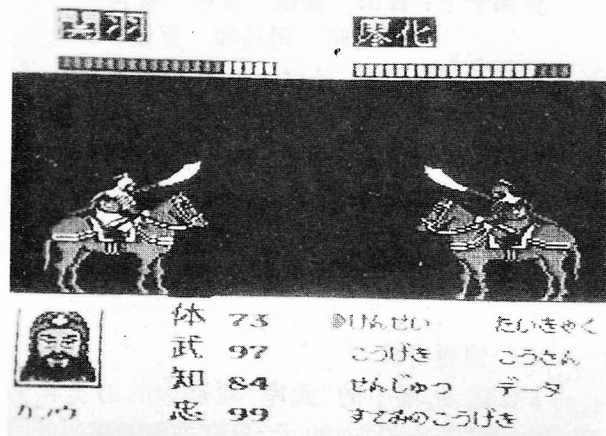 廖化
体 73 けんせい たいきゃく
武 97 こうげき こうさん
知 84 せんじゅつ データ
カンウ 忠 99 すてみのこうげき